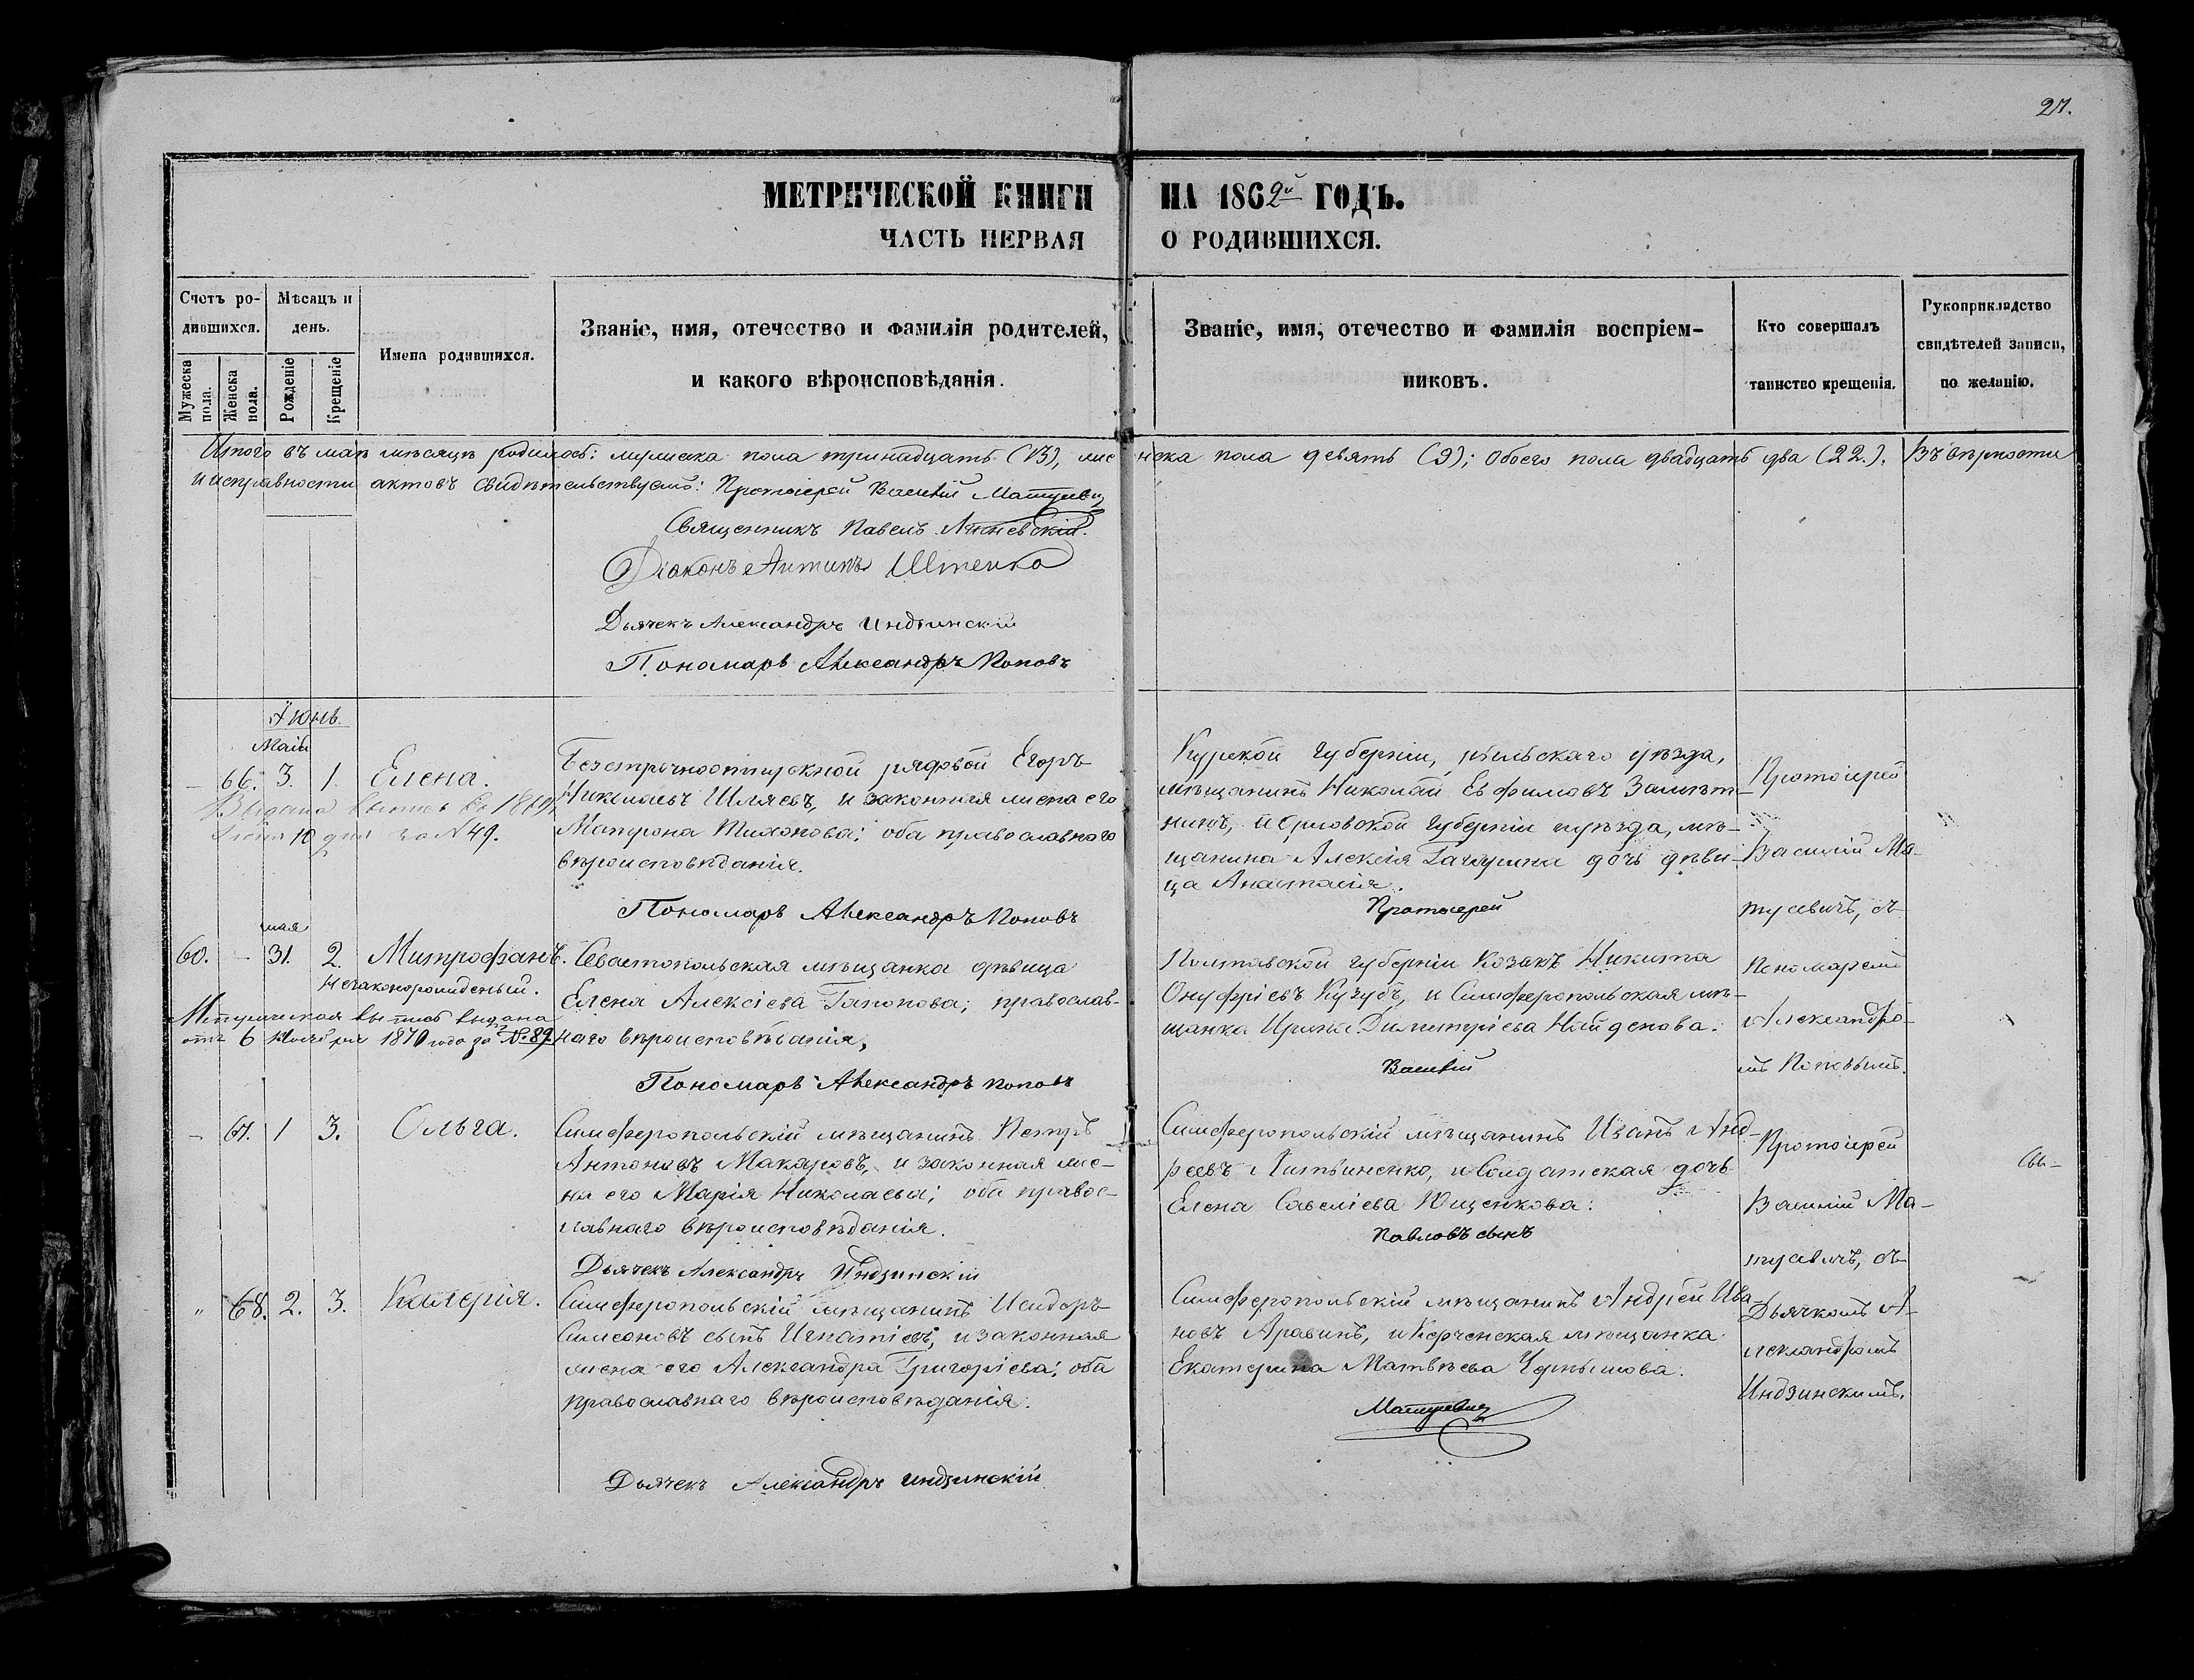 27.
МЕТРИЧЕСКОЙ КНИГИ НА 1862й ГОДЪ.
ЧАСТЬ ПЕРВАЯ О РОДИВШИХСЯ.
Счетъ ро-
дившихся.
Мужеска пола.
Женска пола.
Мѣсяцъ и
день.
Рожденіе
Крещеніе
Имена родившихся.
Званіе, имя, отечество и фамилія родителей,
и какого вѣроисповѣданія.
Званіе, имя, отечество и фамилія воспріем-
никовъ.
Кто совершалъ
таинство крещенія.
Рукоприкладство
свидѣтелей записи,
по желанію.
Итого въ маѣ мѣсяцѣ родилось: мужеска пола тринадцать (13), женска пола девять (9); обоего пола двадцать два (22.). Въ вѣрности
и исправности актовъ свидѣтельствуемъ: Протоіерей Василій Матусевич
Священникъ Павелъ
Діаконъ Антипъ Штенко
Дьячекъ Александръ Индзинскій
Пономарь Александръ Поповъ
Іюнь.
Маія
– 66. 3. 1. Елена.
Выдана выпись въ 1869
10 дня за № 49.
Безсрочноотпускной рядовой Егоръ
Николаевъ Шляевъ, и законная жена его
Матрона Тихонова; оба православнаго
вѣроисповѣданія.
Пономарь Александръ Поповъ
Курской губерніи, рыльскаго уѣзда,
мѣщанинъ Николай Евфимовъ
и Орловской губерніи уѣзда, мѣ-
щанина Алексія дочь дѣви-
ца Анастасія.
Протоіерей
Протоіерей
Василій Ма-
тусевичъ, съ
Пономаремъ
Александро-
мъ Поповымъ.
мая
60. – 31. 2. Митрофанъ.
Незаконорожденный.
Метрическая выпись выдана
отъ 6 Ноября 1870 года за № 89
Севастопольская мѣщанка дѣвица
Елена Алексіева Гапонова; православ-
наго вѣроисповѣданія,
Пономарь Александръ Поповъ
Полтавской губерніи Козакъ Никита
Онуфріевъ Кузубъ, и Симферопольская мѣ-
щанка Ирина Димитріева Найденова:
Василій
– 67. 1 3. Ольга.
Симферопольскій мѣщанинъ Петръ
Антоновъ Макаровъ, и законная же-
на его Марія Николаева; оба правос-
лавнаго вѣроисповѣданія.
Дьячекъ Александръ Индзинскій
Симферопольскій мѣщанинъ Иванъ Анд-
реевъ Литвиненко, и Солдатская дочь
Елена Савеліева Ющенкова:
Павловъ сынъ
Протоіерей
Василій Ма-
тусевичъ, съ
Дьячкомъ А-
лександромъ
Индзинскимъ.
" 68. 2. 3. Калерія.
Симферопольскій мѣщанинъ Исидоръ
Симеоновъ сынъ Игнатіевъ, и законная
жена его Александра Григоріева; оба
православнаго вѣроисповѣданія.
Дьячекъ Александръ Индзинскій
Симферопольскій мѣщанинъ Андрей Ива-
новъ Аравинъ, и Керченская мѣщанка
Екатерина Матвѣева Чернышова.
Матусевич